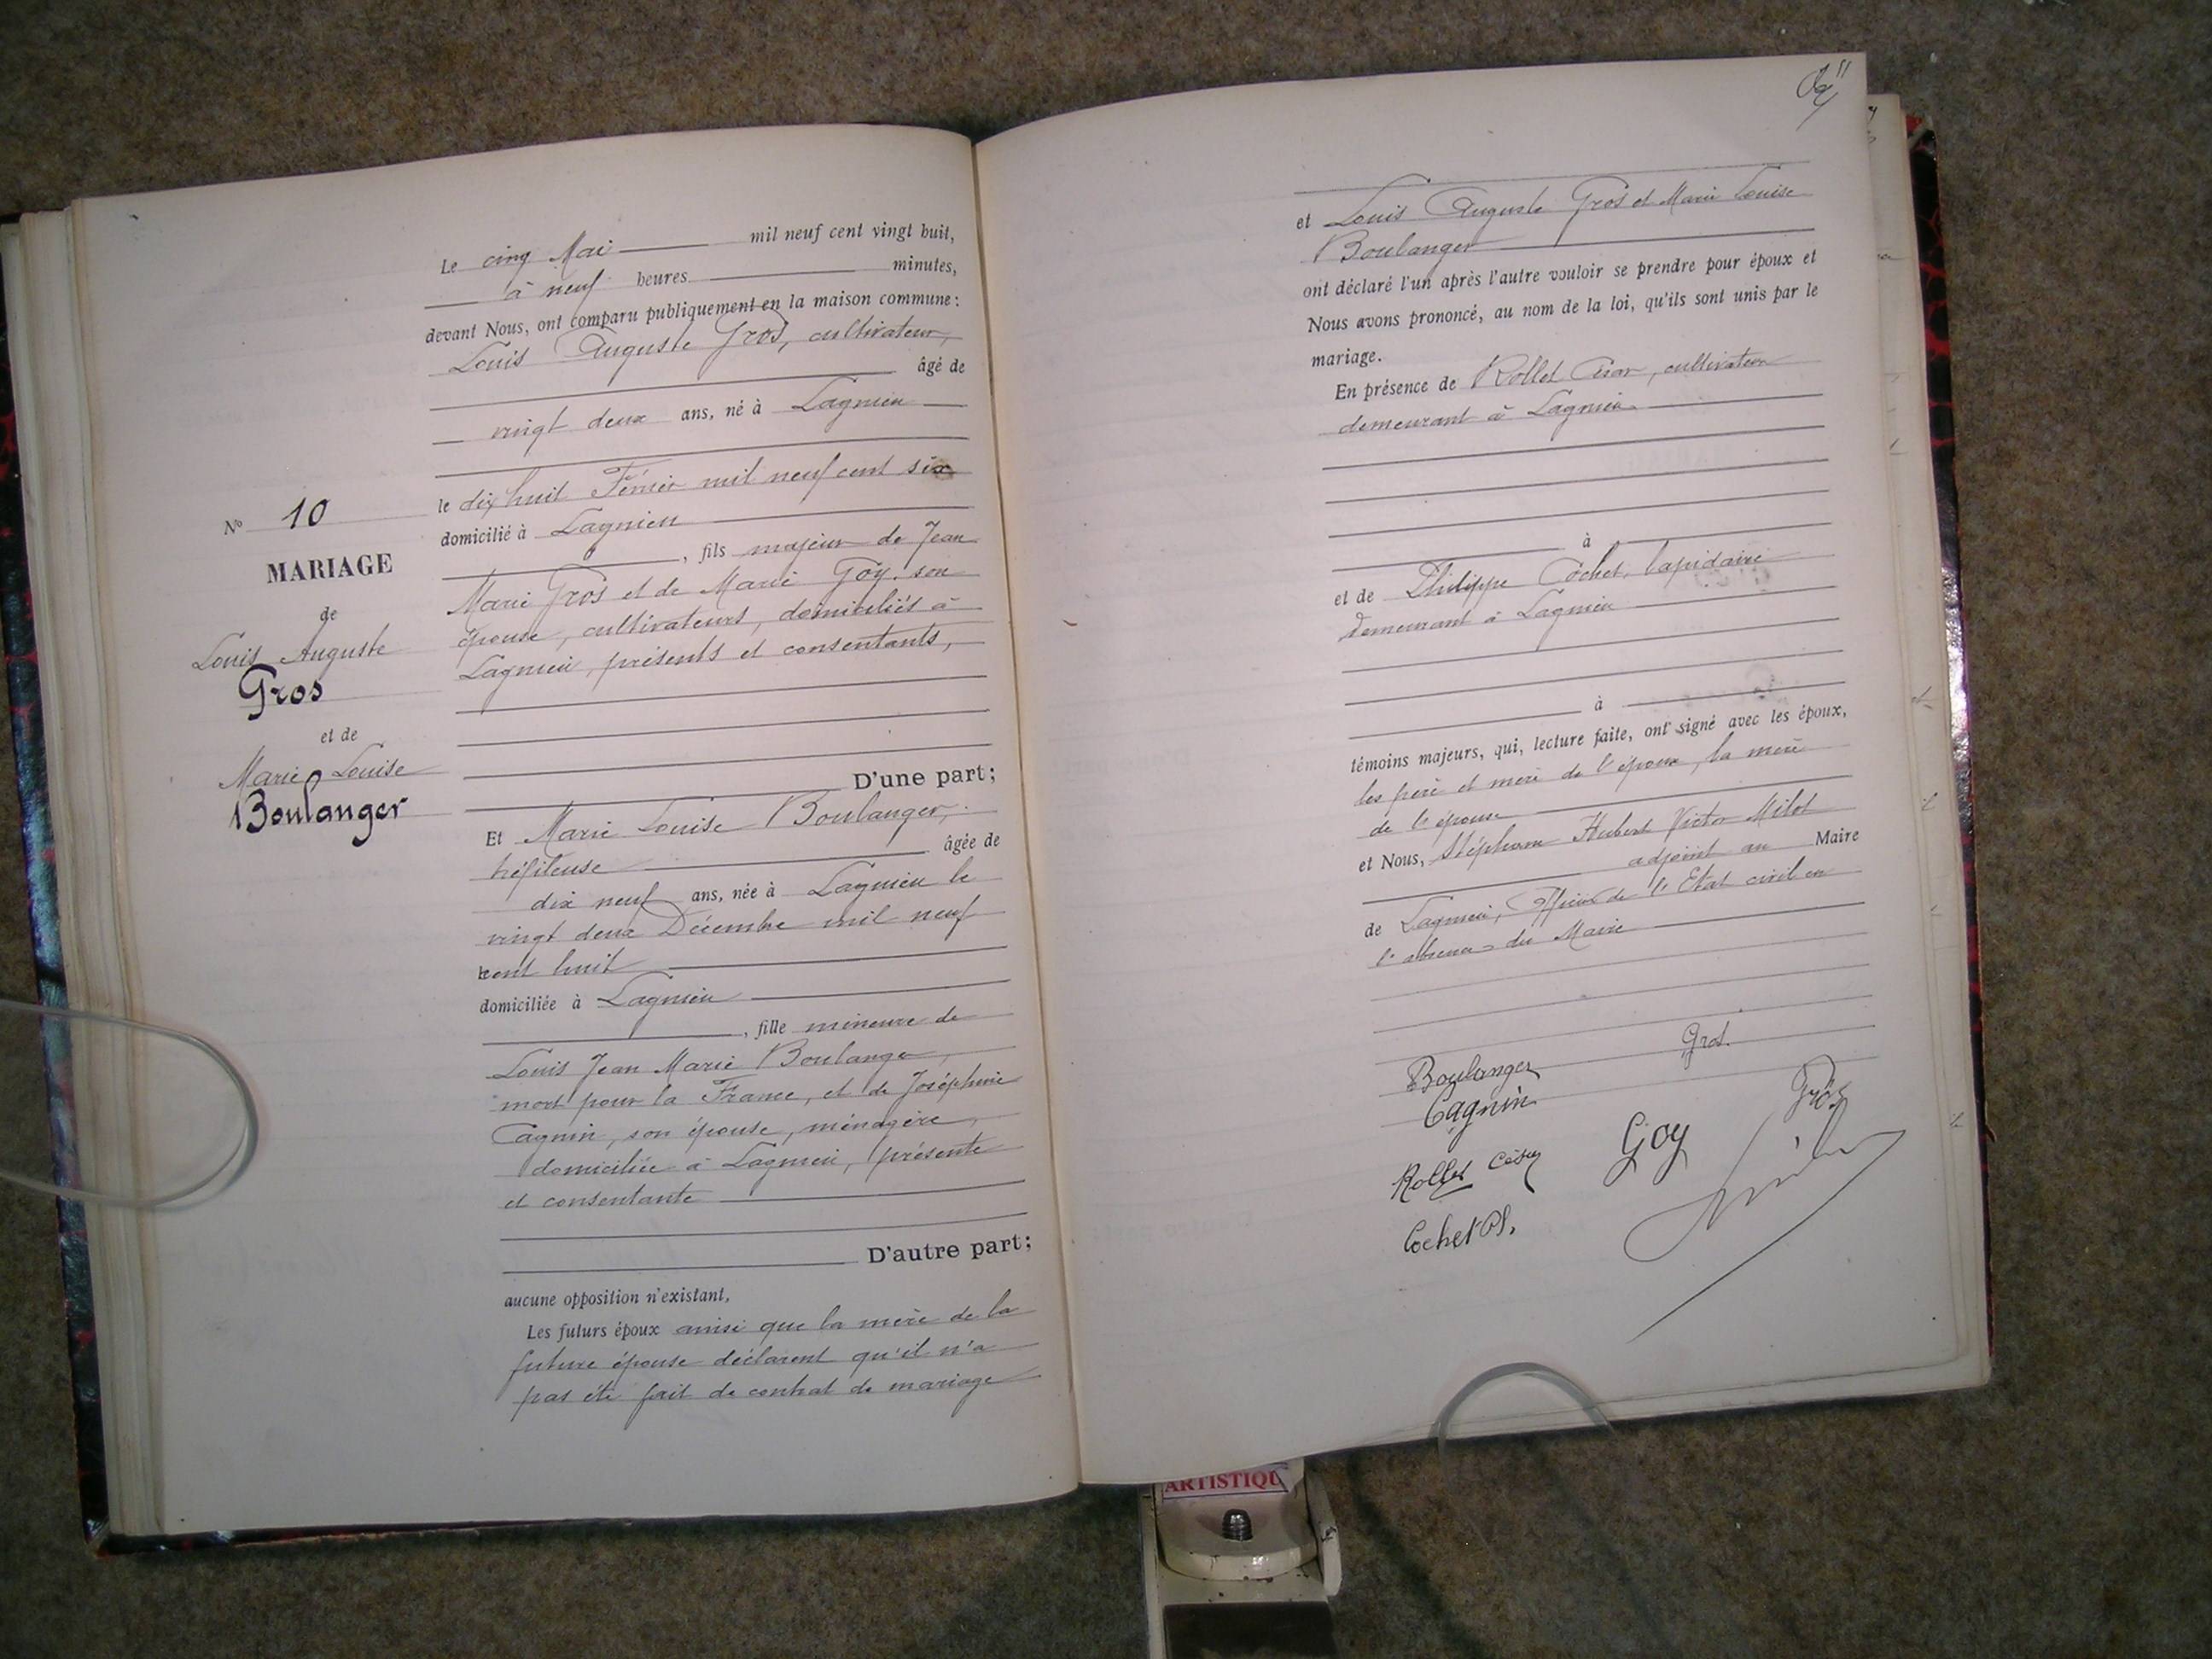 Le cinq Mai mil neuf cent vingt huit,
à neuf heures minutes,
devant Nous, ont comparu publiquement en la maison commune :
Louis Auguste Gros, cultivateur,
âgé de
vingt deux ans, né à Lagnieu
le dix huit Février mil neuf cent six
domicilié à Lagnieu
, fils majeur de Jean
Marie Gros et de Marie Goy son
épouse, cultivateurs, domiciliés à
Lagnieu, présents et consentants,
D'une part;
Nº 10
MARIAGE
de
Louis Auguste
Gros
et de
Marie Louise
Boulanger
Et Marie Louise Boulanger,
tréfileuse âgée de
dix neuf ans, née à Lagnieu le
vingt deux Décembre mil neuf
cent huit
domiciliée à Lagnieu
, fille mineure de
Louis Jean Marie Boulanger,
mort pour la France, et de Joséphine
Cagnin, son épouse, ménagère,
domiciliée à Lagnieu, présente
et consentante
D'autre part;
aucune opposition n'existant,
Les futurs époux ainsi que la mère de la
future épouse déclarent qu'il n'a
pas été fait de contrat de mariage
et Louis Auguste Gros et Marie Louise
Boulanger
ont déclaré l'un après l'autre vouloir se prendre pour époux et
Nous avons prononcé, au nom de la loi, qu'ils sont unis par le
mariage.
En présence de Rollet César, cultivateur
demeurant à Lagnieu
à
et de Philippe Cochet, lapidaire
demeurant à Lagnieu
à
témoins majeurs, qui, lecture faite, ont signé avec les époux,
les père et mère de l'époux, la mère
de l'épouse
et Nous, Stéphane Hubert Victor Milot
adjoint au Maire
de Lagnieu, Officier de l'Etat civil en
l'absence du Maire
Boulanger Gros
Cagnin Gros
Rollet César Goy
Cochet Ph.
ARTISTIQU